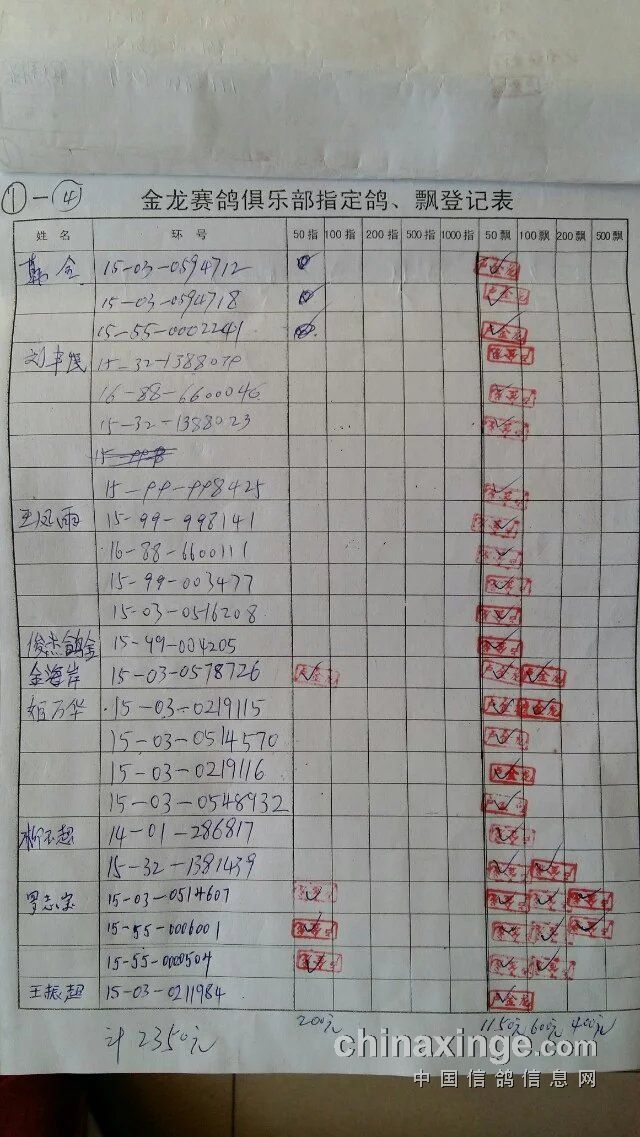 ①-④ 金龙赛鸽俱乐部指定鸽、飘登记表
姓名 环号 50指 100指 200指 500指 1000指 50飘 100飘 200飘 500飘
15-03-0594712
15-03-0594718
15-55-0002241
刘丰民 15-32-1388079
16-88-6600046
15-32-1388023
15-99-998425
王风雨 15-99-998141
16-88-6600111
15-99-003477
15-03-0516208
俊杰鸽舍 15-99-004205
金海岸 15-03-0578726
姬万华 15-03-0219115
15-03-0514570
15-03-0219116
15-03-0548932
14-01-286817
15-32-1381439
罗志宏 15-03-0514607
15-55-0006001
15-55-0000504
王振超 15-03-0211984
计2350元 200元 1150元 600元 400元
chinaxinge.com
中国信鸽信息网